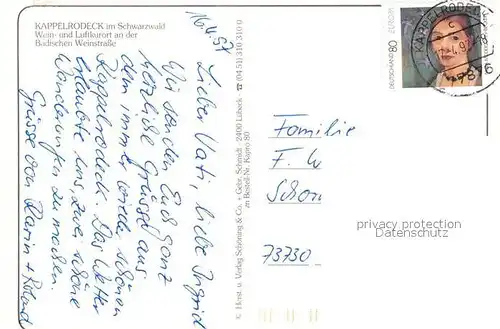 KAPPELRODECK im Schwarzwald
Wein- und Luftkurort an der
Badischen Weinstraße
16.4.97
Lieber Vati, liebe Ingrid
Wir senden Euch ganz
herzliche Grüsse aus
dem immer wieder schönen
Kappelrodeck. Das Wetter
erlaubte uns, zwei schöne
Wanderungen zu machen.
Grüsse von Karin + Roland
© Herst. u. Verlag Schöning & Co. + Gebr. Schmidt · 2400 Lübeck · ☎ (04 51) 310 310 0
Bestell-Nr. 80
DEUTSCHLAND 80 EUROPA
KAPPELRODECK
Familie
F. W
Schon
73730
privacy protection
VARIAGE